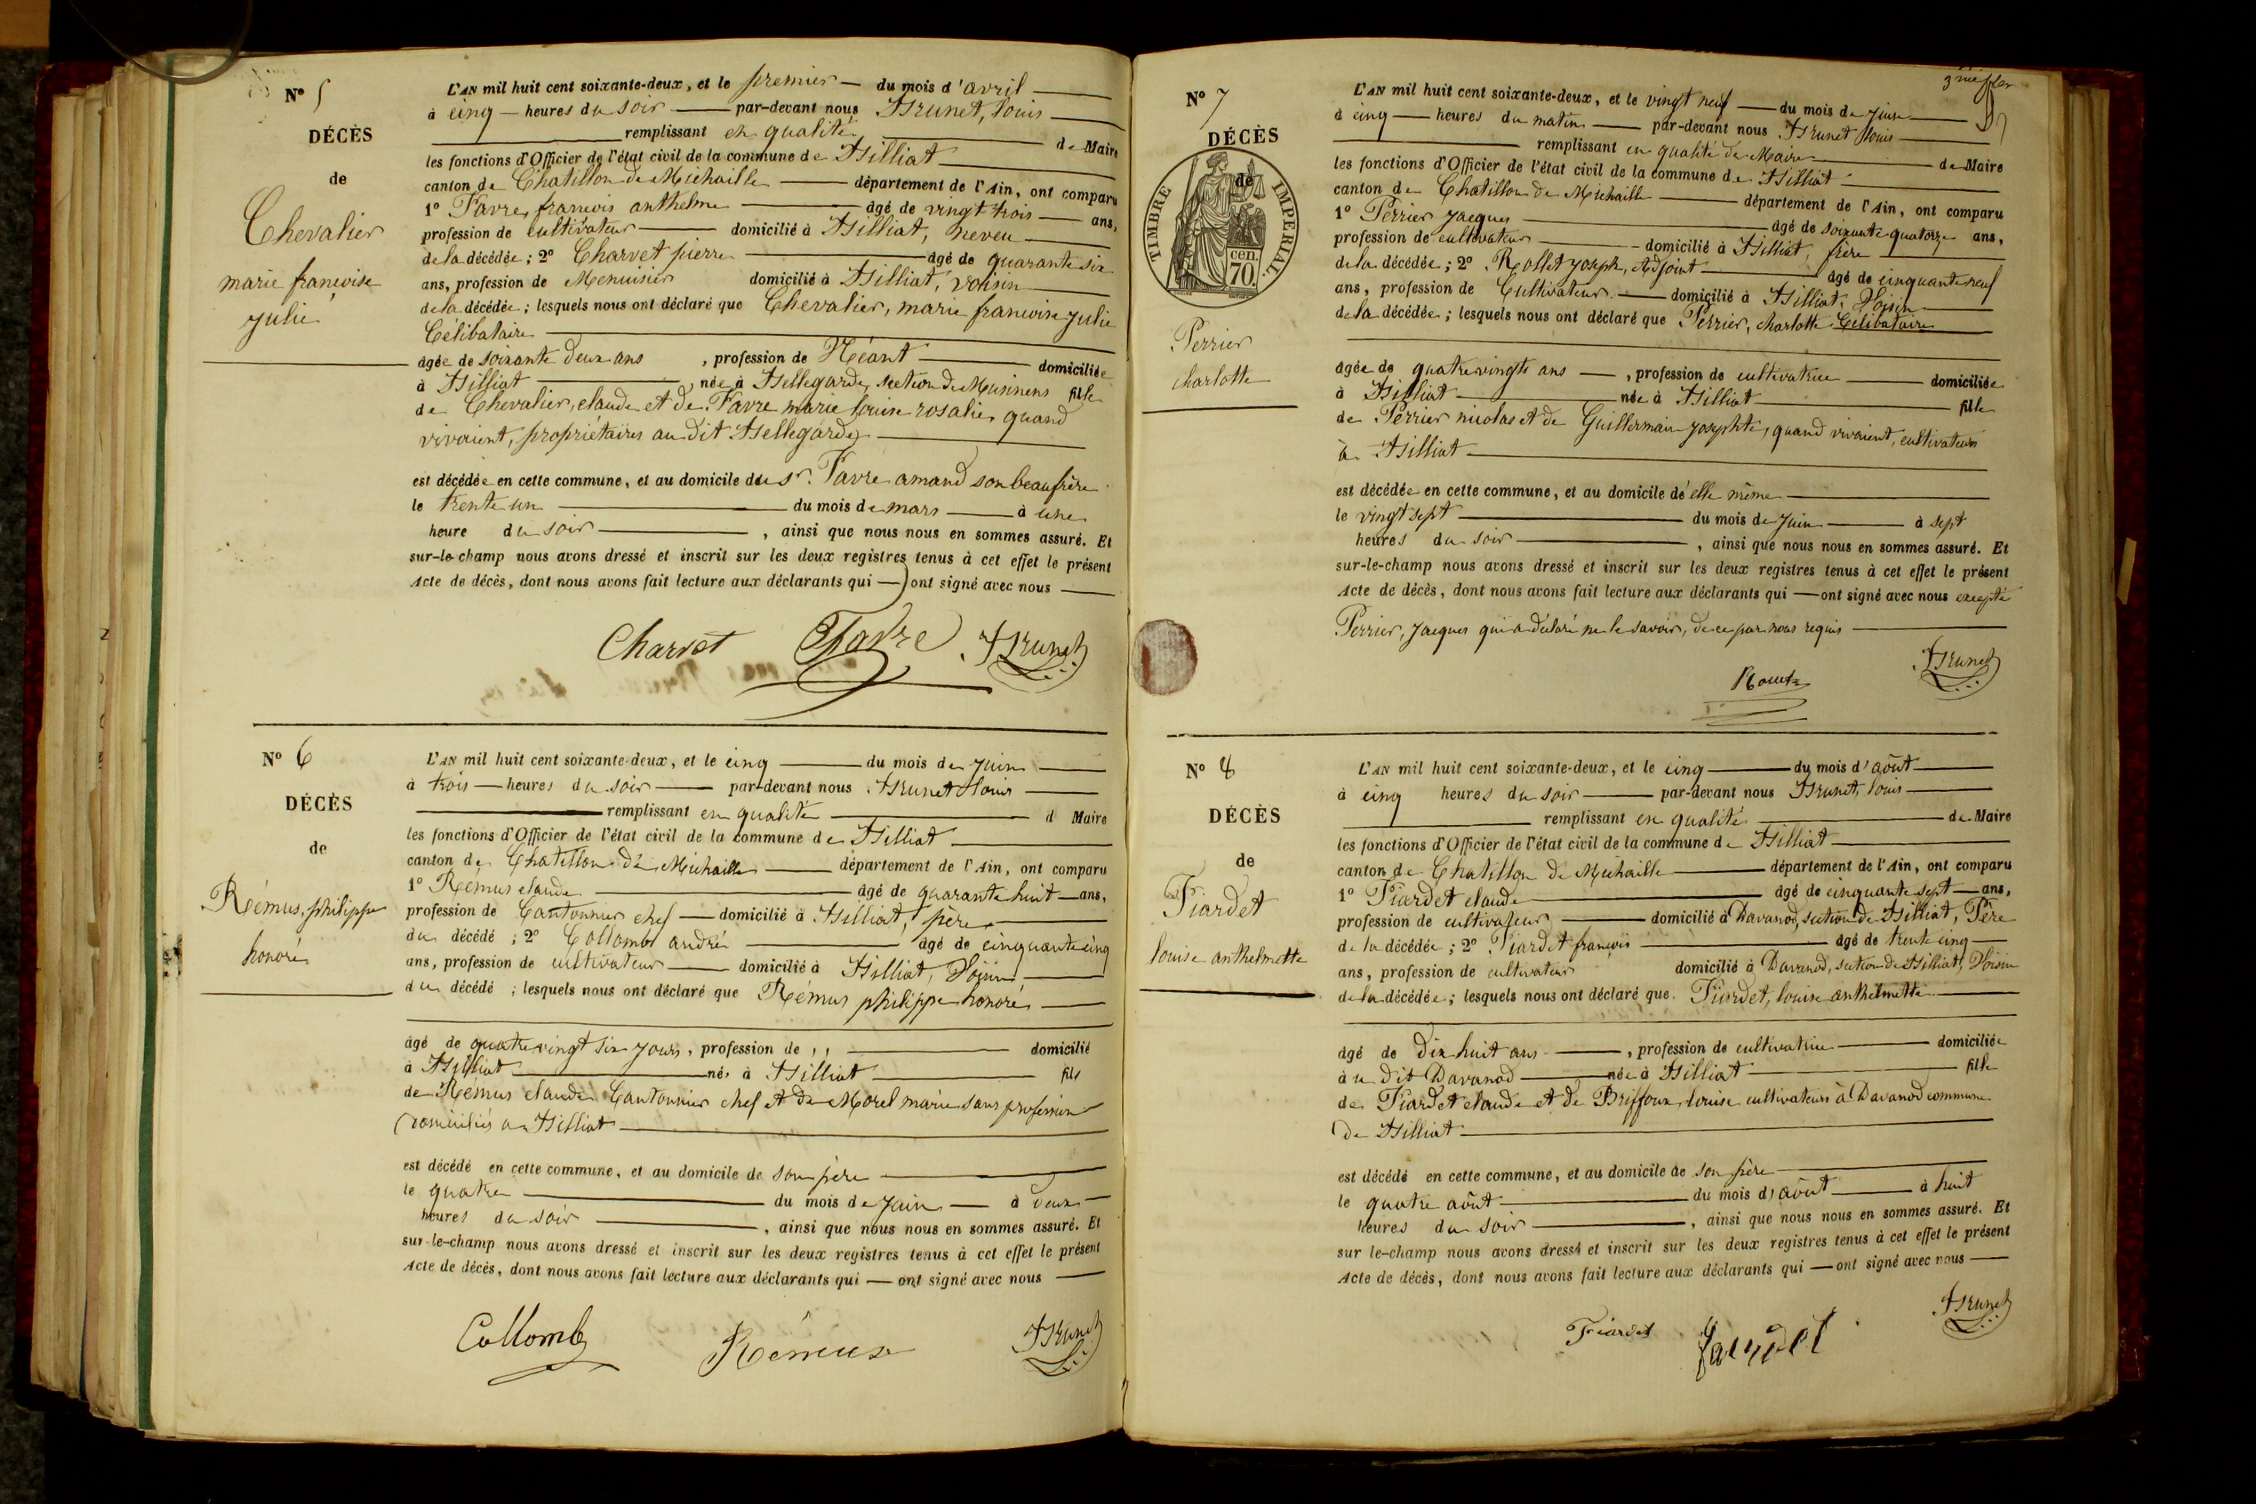 N° 5
DÉCÈS
de
Chevalier
marie françoise
julie
L'AN mil huit cent soixante-deux, et le premier du mois d'avril
à cinq heures du soir par-devant nous Brunet, louis
remplissant en qualité de Maire
les fonctions d'Officier de l'état civil de la commune de Billiat
canton de Chatillon de Michaille département de l'Ain, ont comparu
1° Favre, françois anthelme âgé de vingt trois ans,
profession de cultivateur domicilié à Billiat, neveu
de la décédée; 2° Charvet pierre âgé de quarante six
ans, profession de Menuisier domicilié à Billiat, voisin
de la décédée; lesquels nous ont déclaré que Chevalier, marie françoise julie
Célibataire
agée de soixante deux ans, profession de Néant domiciliée
à Billiat née à Bellegarde, section de Musinens fille
de Chevalier, claude et de Favre marie louise rosalie, quand
vivaient, propriétaires au dit Bellegarde
est décédée en cette commune, et au domicile du sr. Favre amand son beau frère
le trente un du mois de mars à une
heure du soir, ainsi que nous nous en sommes assuré. Et
sur-le-champ nous avons dressé et inscrit sur les deux registres tenus à cet effet le présent
Acte de décès, dont nous avons fait lecture aux déclarants qui ont signé avec nous
Charvet Favre Brunet
N° 6
DÉCÈS
de
Rémus, philippe
honoré
L'AN mil huit cent soixante-deux, et le cinq du mois de juin
à trois heures du soir par-devant nous Brunet louis
remplissant en qualité d Maire
les fonctions d'Officier de l'état civil de la commune de Billiat
canton de Chatillon de Michaille département de l'Ain, ont comparu
1° Rémus claude âgé de quarante huit ans,
profession de Cantonnier chef domicilié à Billiat, père
du décédé; 2° Collomb andré âgé de cinquante cinq
ans, profession de cultivateur domicilié à Billiat, Voisin
du décédé; lesquels nous ont déclaré que Rémus philippe honoré
âgé de quatre vingt six jours, profession de ,, domicilié
à Billiat né à Billiat fils
de Rémus claude Cantonnier chef et de Morel marie sans profession
domiciliés à Billiat
est décédé en cette commune, et au domicile de son père
le quatre du mois de juin à deux
heures du soir, ainsi que nous nous en sommes assuré. Et
sur-le-champ nous avons dressé et inscrit sur les deux registres tenus à cet effet le présent
Acte de décès, dont nous avons fait lecture aux déclarants qui ont signé avec nous
Collomb Rémus Brunet
3me
N° 7
DÉCÈS
de
TIMBRE IMPÉRIAL.
70. cen.
Perrier
charlotte
L'AN mil huit cent soixante-deux, et le vingt neuf du mois de juin
à cinq heures du matin par-devant nous Brunet louis
remplissant en qualité de Maire de Maire
les fonctions d'Officier de l'état civil de la commune de Billiat
canton de Chatillon de Michaille département de l'Ain, ont comparu
1° Perrier jacques âgé de soixante quatorze ans,
profession de cultivateur domicilié à Billiat, frère
de la décédée; 2° Rollet joseph, Adjoint âgé de cinquante neuf
ans, profession de Cultivateur domicilié à Billiat, Voisin
de la décédée; lesquels nous ont déclaré que Perrier, charlotte Célibataire
âgée de quatre vingts ans, profession de cultivatrice domiciliée
à Billiat née à Billiat fille
de Perrier nicolas et de Guillermain josephte, quand vivaient, cultivateurs
à Billiat
est décédée en cette commune, et au domicile d'elle même
le vingt sept du mois de juin à sept
heures du soir, ainsi que nous nous en sommes assuré. Et
sur-le-champ nous avons dressé et inscrit sur les deux registres tenus à cet effet le présent
Acte de décès, dont nous avons fait lecture aux déclarants qui ont signé avec nous excepté
Perrier, jacques qui a déclaré ne le savoir, de ce par nous requis
Brunet
N° 8
DÉCÈS
de
Tiardet
louise anthelmette
L'AN mil huit cent soixante-deux, et le cinq du mois d'août
à cinq heures du soir par-devant nous Brunet, louis
remplissant en qualité de Maire
les fonctions d'Officier de l'état civil de la commune de Billiat
canton de Chatillon de Michaille département de l'Ain, ont comparu
1° Tiardet claude âgé de cinquante sept ans,
profession de cultivateur domicilié à Davanod, section de Billiat, Père
de la décédée; 2° Tiardet françois âgé de trente cinq
ans, profession de cultivateur domicilié à Davanod, section de Billiat, Voisin
de la décédée; lesquels nous ont déclaré que Tiardet, louise anthelmette
âgé de Dix huit ans, profession de cultivatrice domiciliée
à u dit Davanod née à Billiat fille
de Tiardet claude et de Briffoux, louise cultivateurs à Davanod commune
de Billiat
est décédé en cette commune, et au domicile de son père
le quatre août du mois d'août à huit
heures du soir, ainsi que nous nous en sommes assuré. Et
sur le-champ nous avons dressé et inscrit sur les deux registres tenus à cet effet le présent
Acte de décès, dont nous avons fait lecture aux déclarants qui ont signé avec nous
Tiardet Brunet